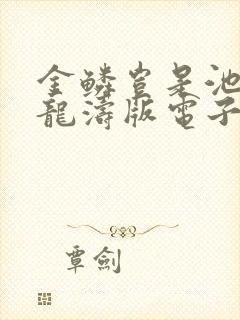 金鱗豈是池
龍濤版電子
覃劍